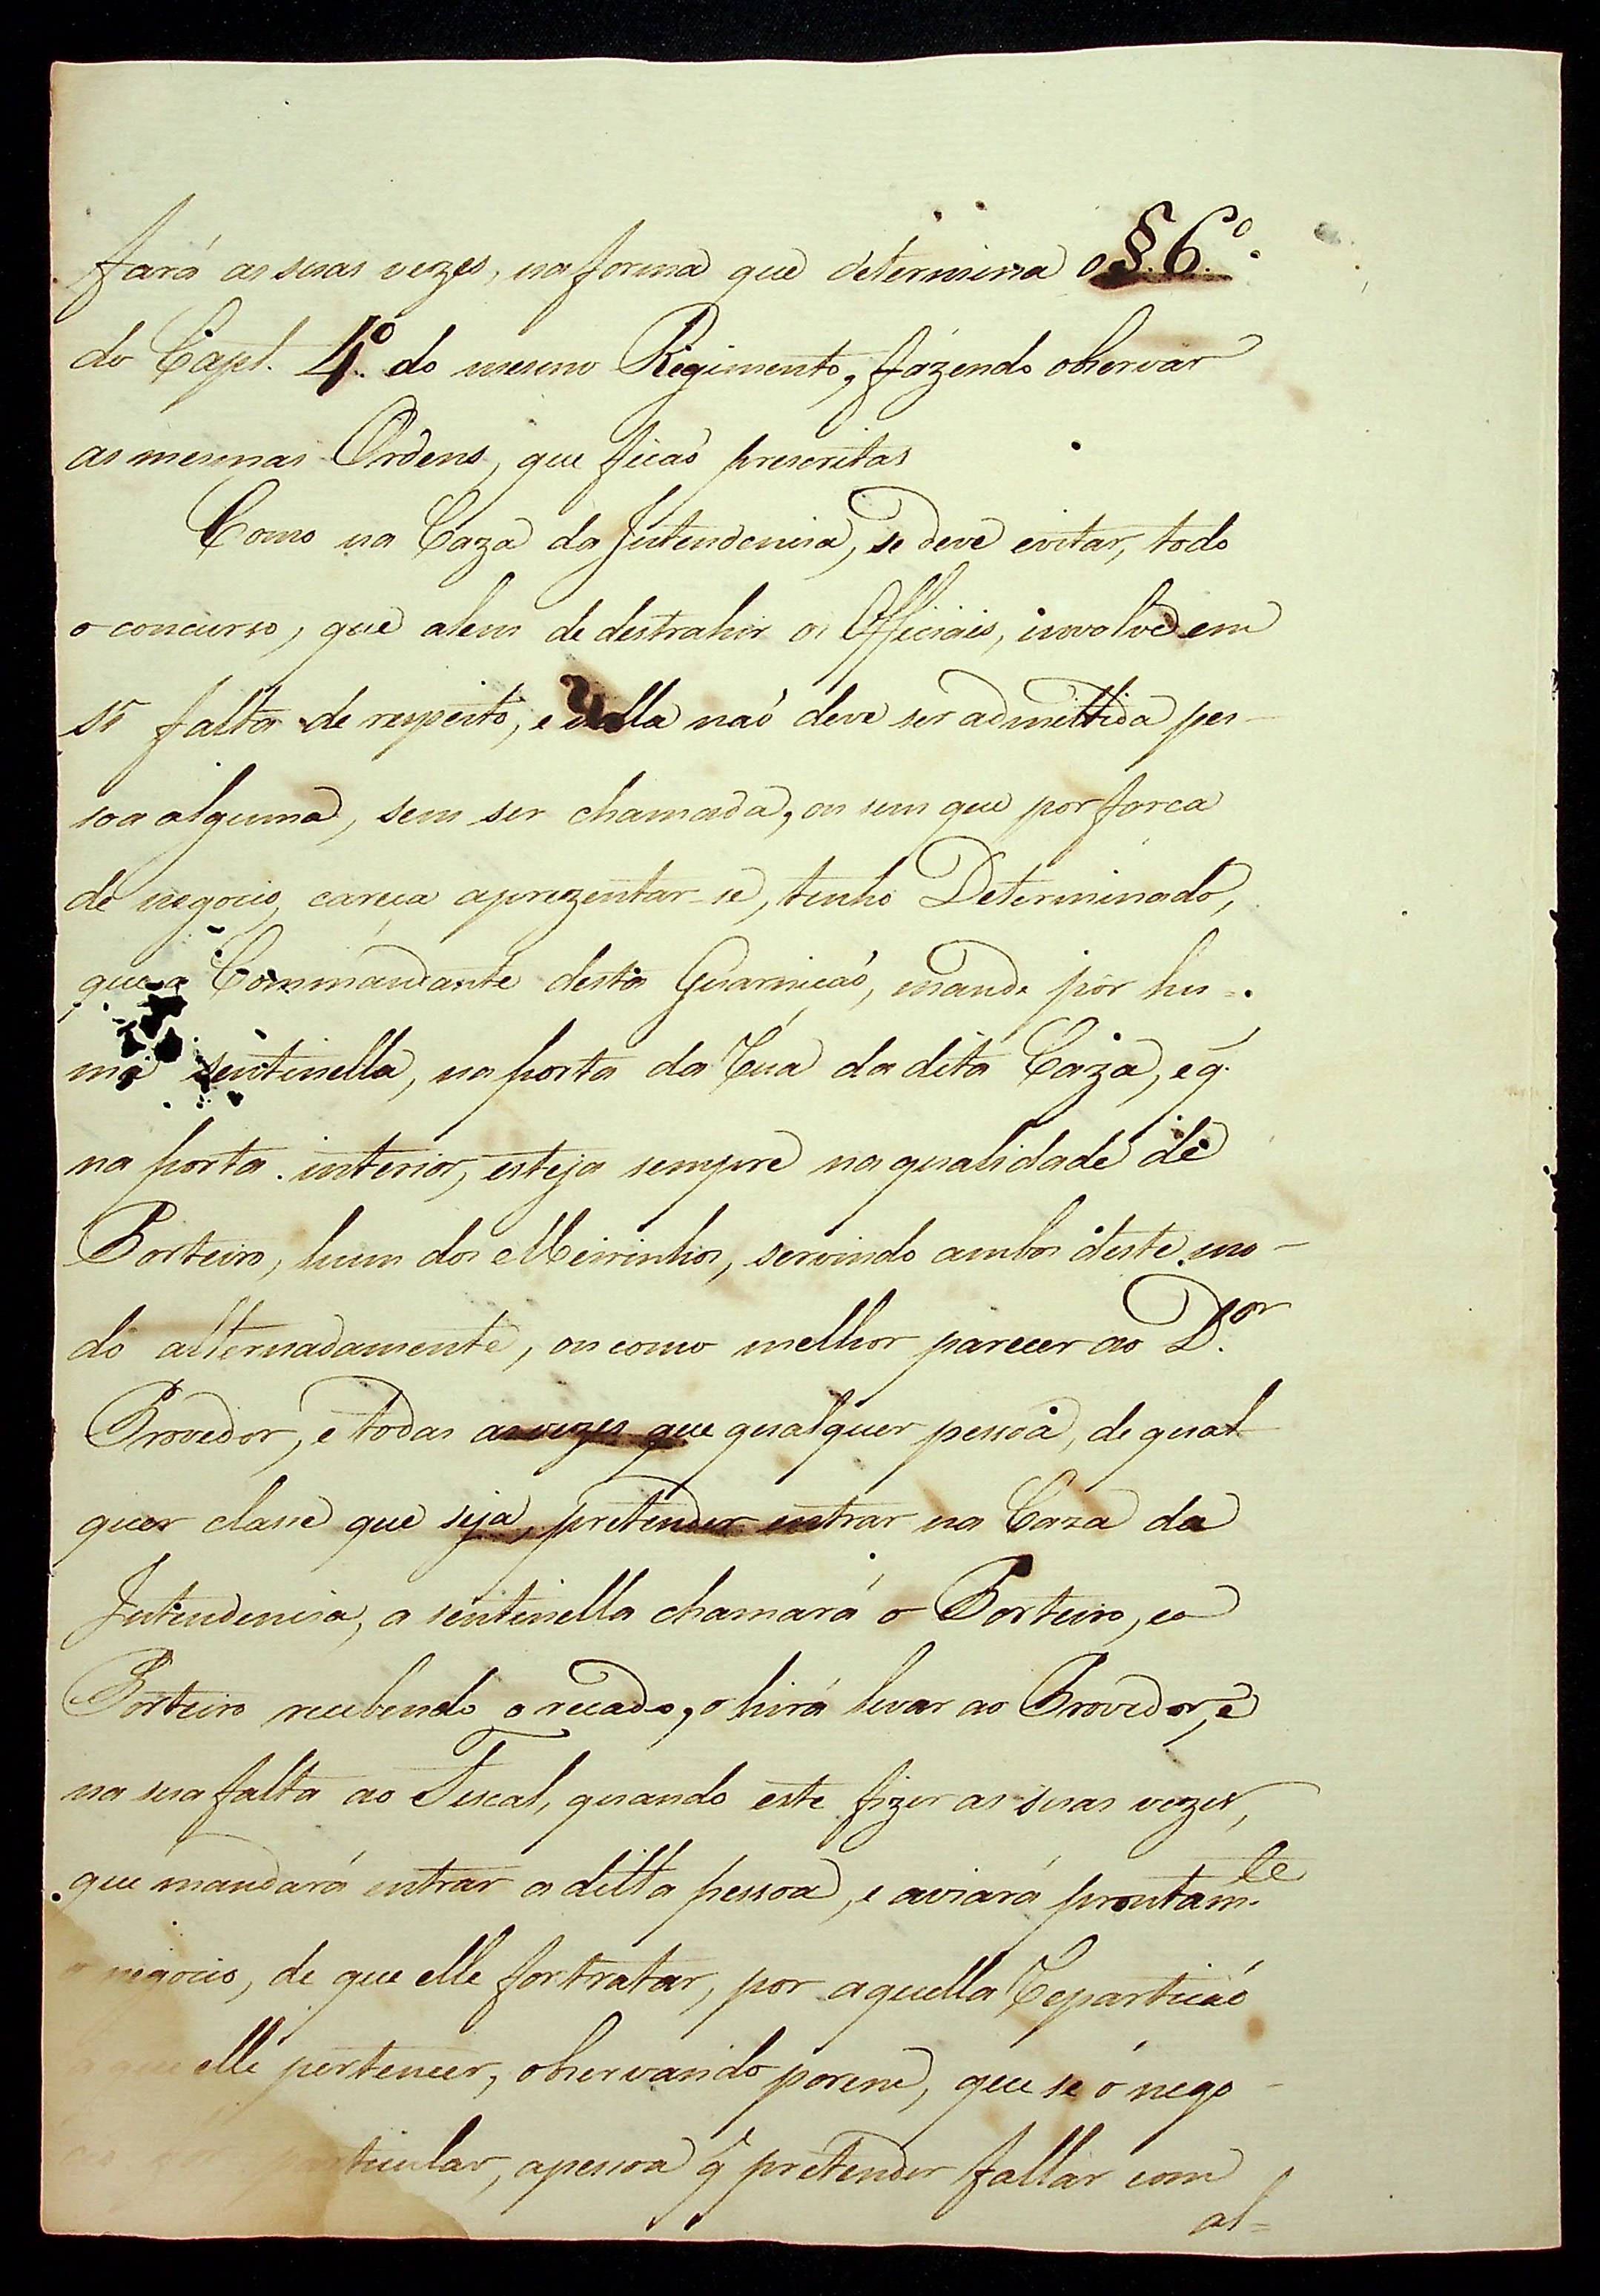 fará as suas vezes, na forma que determina o §. 6.º
do Capl. 4.º do mesmo Regimento, fazendo observar
as mesmas Ordens, que ficaõ prescritas
Como na Caza da Intendencia, se deve evitar, todo
o concurso, que alem de destrahir os Officiais, involve em
si falta de respeito, e nella naõ deve ser admettida pes-
soa alguma, sem ser chamada, ou sem que por forca
de negocio, careça aprezentar-se, tenho Determinado,
que o Commandante desta Guarnicaõ, mande pôr hu=
ma sentinella, na porta da Rua da dita Caza, e q.
na porta interior, esteja sempre na qualidade de
Porteiro, hum dos Meirinhos, servindo ambos deste mo-
do alternadamente, ou como melhor parecer ao D.or
Provedor, e todas as vezes que qualquer pessoa, de qual
quer classe que seja, pretender entrar na Caza da
Intendencia, a sentinella chamará o Porteiro, e o
Porteiro recebendo o recado, o hirá levar ao Provedor, e
na sua falta ao Fiscal, quando este fizer as suas vezes,
que mandará entrar a ditta pessoa, e aviará prontam.te
o negocio, de que elle for tratar, por aquella Reparticaõ
a que elle pertencer, observando porem, que se o nego-
ticular, a pessoa q̃ pretender fallar com
al=